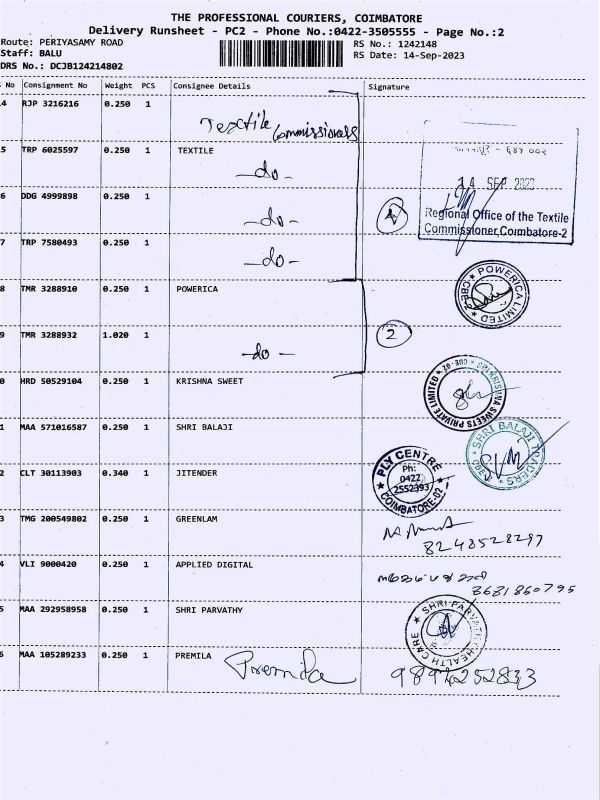 THE PROFESSIONAL COURIERS, COIMBATORE
Delivery Runsheet - PC2 - Phone No.:0422-3505555 - Page No.:2
Route: PERIYASAMY ROAD
RS No.: 1242148
Staff: BALU
RS Date: 14-Sep-2023
DRS No.: DCJB124214802
No Consignment No Weight PCS Consignee Details Signature
4 RJP 3216216 0.250 1
Textile Commissionals
5 TRP 6025597 0.250 1 TEXTILE
-do-
14 SEP 2023
6 DDG 4999898 0.250 1
-do-
4
Regional Office of the Textile
Commissioner, Coimbatore-2
7 TRP 7580493 0.250 1
-do-
8 TMR 3288910 0.250 1 POWERICA
POWERICA LIMITED
CBE-2
9 TMR 3288932 1.020 1
-do-
2
0 HRD 50529104 0.250 1 KRISHNA SWEET
SRI KRISHNA SWEETS PRIVATE LIMITED
1 MAA 571016587 0.250 1 SHRI BALAJI
SHRI BALAJI TRADERS
2 CLT 30113903 0.340 1 JITENDER
PLY CENTRE
Ph:
0422
2552393
COIMBATORE-02
3 TMG 200549802 0.250 1 GREENLAM
8248528297
4 VLI 9000420 0.250 1 APPLIED DIGITAL
8681860795
5 MAA 292958958 0.250 1 SHRI PARVATHY
SHRI PARVATHY HEALTH CARE
6 MAA 105289233 0.250 1 PREMILA
Premila